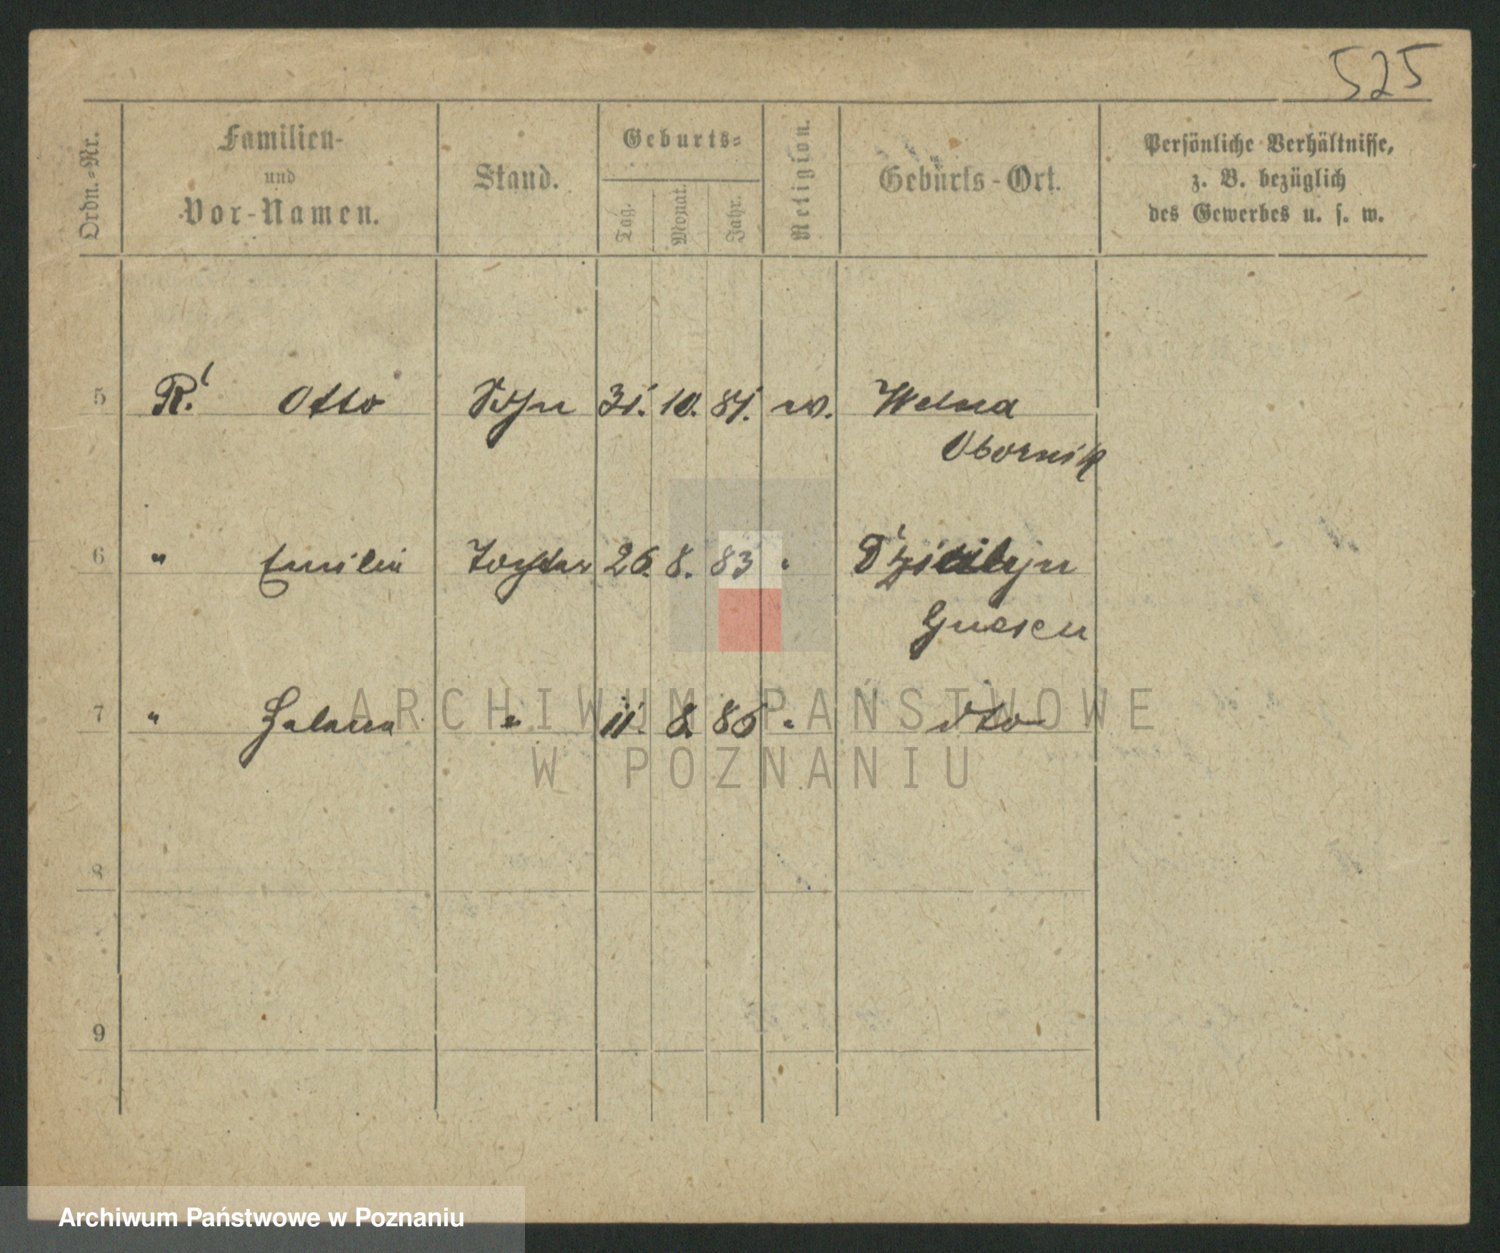 525
Ordn.-Nr.
Familien-
und
Vor-Namen.
Stand.
Geburts-
Tag.
Monat.
Jahr.
Religion.
Geburts-Ort.
Persönliche Verhältnisse,
z. B. bezüglich
des Gewerbes u. s. w.
5 R. Otto Sohn 31. 10. 81. w. Welna
Obornik
6 " Emilie Tochter 26. 8. 83 "
Gnesen
7 " " 11. 8. 86 " dto
ARCHIWUM PAŃSTWOWE
W POZNANIU
8
9
Archiwum Państwowe w Poznaniu